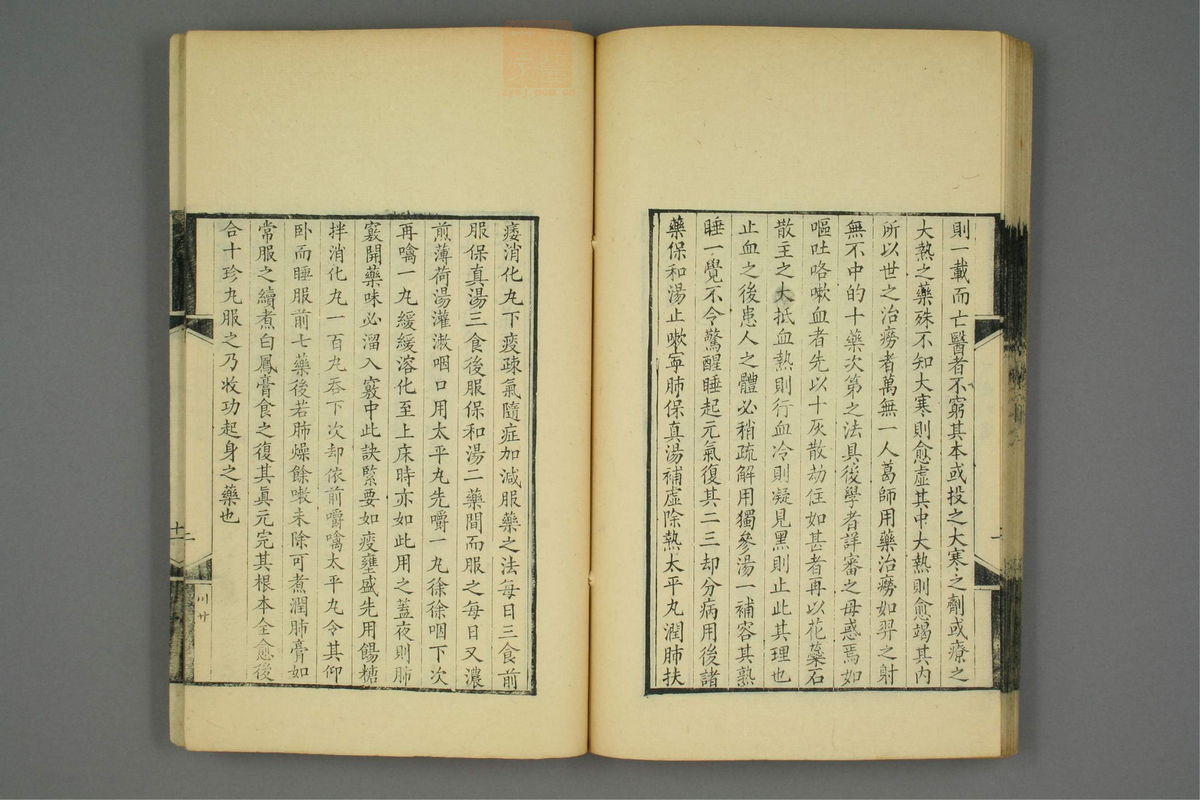 則一載而亡醫者不窮其本或投之大寒之劑或療之
大熱之藥殊不知大寒則愈虛其中大熱則愈竭其內
所以世之治癆者萬無一人葛師用藥治癆如羿之射
無不中的十藥次第之法具後學者詳審之毋惑焉如
嘔吐咯嗽血者先以十灰散劫住如甚者再以花蘂石
散主之大抵血熱則行血冷則凝見黑則止此其理也
止血之後患人之體必稍疏解用獨參湯一補容其熟
睡一覺不令驚醒睡起元氣復其二三却分病用後諸
藥保和湯止嗽寧肺保真湯補虛除熱太平丸潤肺扶
痿消化丸下痰疎氣隨症加減服藥之法每日三食前
服保真湯三食後服保和湯二藥間而服之每日又濃
煎薄荷湯灌漱咽口用太平丸先嚼一丸徐徐咽下次
再噙一丸緩緩溶化至上床時亦如此用之蓋夜則肺
竅開藥味必溜入竅中此訣緊要如痰壅盛先用餳糖
拌消化丸一百丸吞下次却依前嚼噙太平丸令其仰
卧而睡服前七藥後若肺燥餘嗽未除可煮潤肺膏如
常服之續煮白鳳膏食之復其眞元完其根本全愈後
合十珍丸服之乃收功起身之藥也
二
十二
川廾